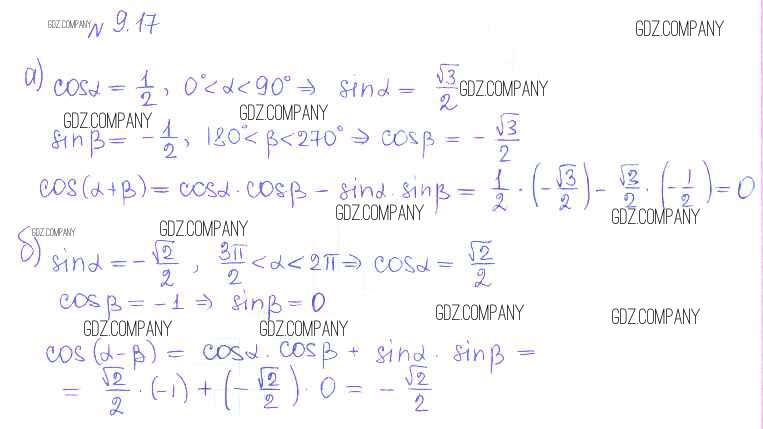 GDZ.COMPANY № 9.17 GDZ.COMPANY
а) cosα = 1/2, 0° < α < 90° ⇒ sinα = √3/2 GDZ.COMPANY
GDZ.COMPANY GDZ.COMPANY
sinβ = -1/2, 180° < β < 270° ⇒ cosβ = -√3/2
cos(α+β) = cosα · cosβ - sinα · sinβ = 1/2 · (-√3/2) - √3/2 · (-1/2) = 0
GDZ.COMPANY GDZ.COMPANY
GDZ.COMPANY GDZ.COMPANY
б) sinα = -√2/2, 3π/2 < α < 2π ⇒ cosα = √2/2
cosβ = -1 ⇒ sinβ = 0 GDZ.COMPANY GDZ.COMPANY
GDZ.COMPANY GDZ.COMPANY
cos(α-β) = cosα · cosβ + sinα · sinβ =
= √2/2 · (-1) + (-√2/2) · 0 = -√2/2